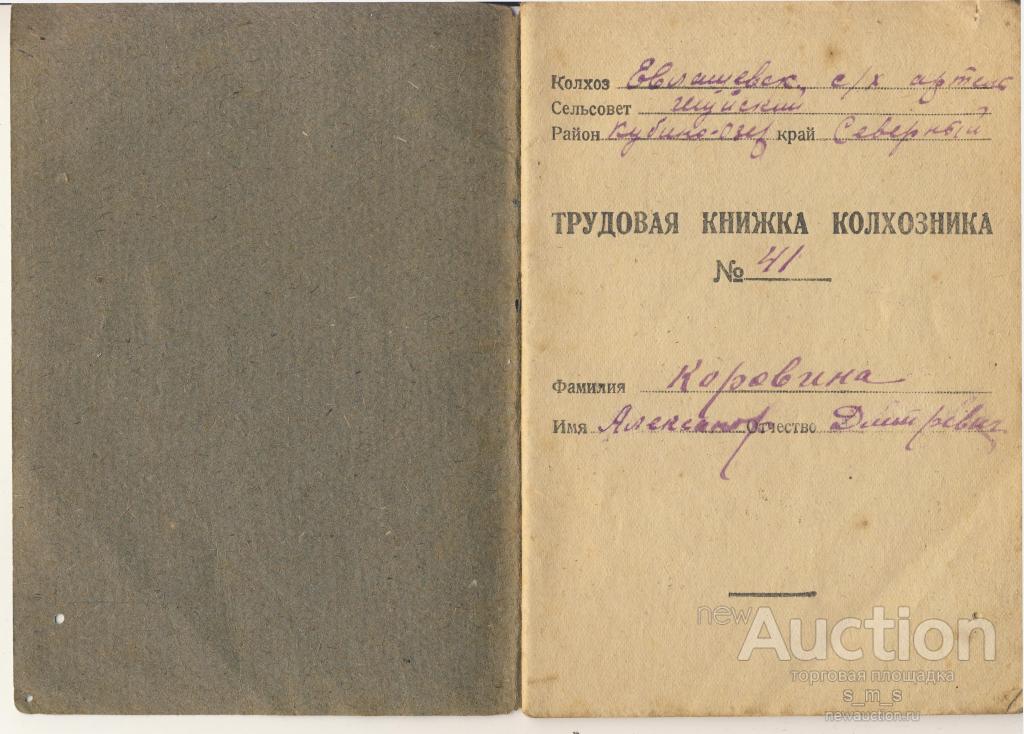 Колхоз Евлашевск. с/х артель
Сельсовет
Район Кубино-Озер край Северный
ТРУДОВАЯ КНИЖКА КОЛХОЗНИКА
№ 41
Фамилия Коровина
Имя Александр Отчество Дмитревич
newAuction
торговая площадка
s_m_s
newauction.ru